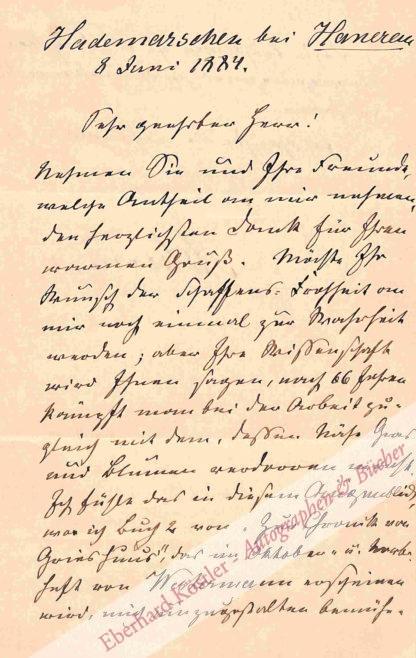 Hademarschen bei Hanerau
8 Juni 1884.
Sehr geehrter Herr!
Nehmen Sie und Ihre Freunde,
welche Antheil an mir nehmen,
den herzlichsten Dank für Ihren
warmen Gruß. Möchte Ihr
Wunsch der Schaffens-Frohheit an
mir noch einmal zur Wahrheit
werden; aber Ihre Wissenschaft
wird Ihnen sagen, nach 66 Jahren
kämpft man bei der Arbeit zu-
gleich mit dem, dessen Nähe Gras
und Blumen verdorren macht.
Ich fühle das in diesem Augenblick,
wo ich Buch 2 von "Zur Chronik von
Grieshuus", das im Oktober- u. Novbr-
heft von Westermann erscheinen
wird, mich umzugestalten bemühe.
Eberhard Köstler - Autographen & Bücher